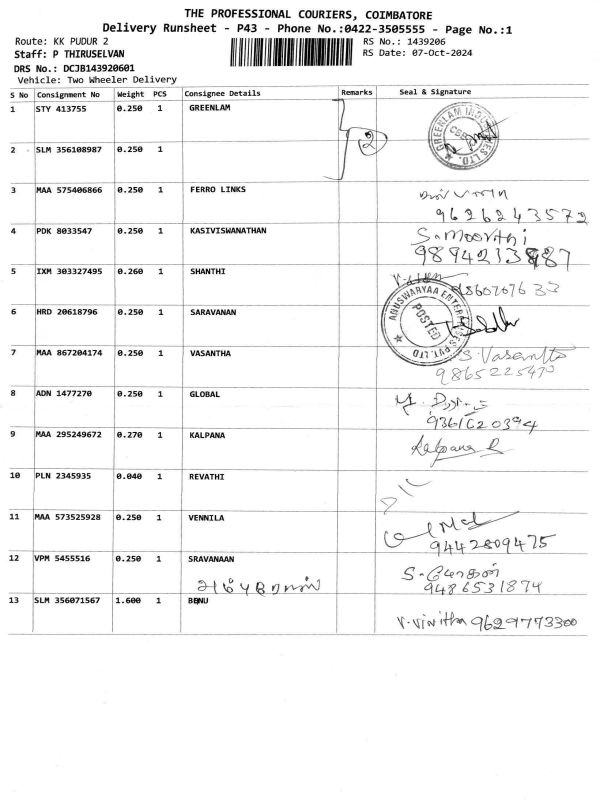 THE PROFESSIONAL COURIERS, COIMBATORE
Delivery Runsheet - P43 - Phone No.:0422-3505555 - Page No.:1
Route: KK PUDUR 2 RS No.: 1439206
Staff: P THIRUSELVAN RS Date: 07-Oct-2024
DRS No.: DCJB143920601
Vehicle: Two Wheeler Delivery
S No Consignment No Weight PCS Consignee Details Remarks Seal & Signature
1 STY 413755 0.250 1 GREENLAM
2
2 SLM 356108987 0.250 1
3 MAA 575406866 0.250 1 FERRO LINKS
9626243572
4 PDK 8033547 0.250 1 KASIVISWANATHAN S. Moorthi
5 IXM 303327495 0.260 1 SHANTHI
6 HRD 20618796 0.250 1 SARAVANAN
AGUSWARYAA ENTERPRISES PVT. LTD
POSTED
7 MAA 867204174 0.250 1 VASANTHA S. Vasantha
9865225470
8 ADN 1477270 0.250 1 GLOBAL
9361620394
9 MAA 295249672 0.270 1 KALPANA Kalpana R
10 PLN 2345935 0.040 1 REVATHI
D/L
11 MAA 573525928 0.250 1 VENNILA
9442809475
12 VPM 5455516 0.250 1 SRAVANAAN
9486531874
13 SLM 356071567 1.600 1 BANU
V. Vinitha 9629773300